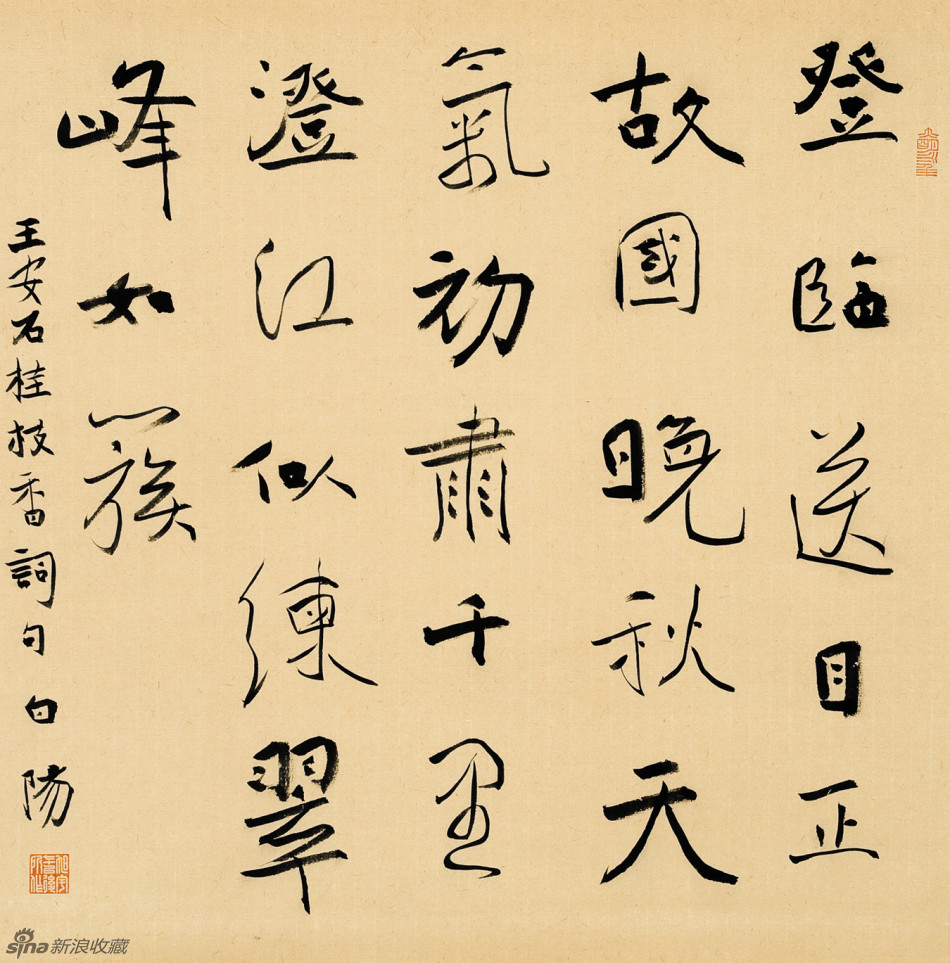 登臨送目正
故國晚秋天
氣初肅千里
澄江似練翠
峰如簇
王安石桂枝香詞句 白陽
sina新浪收藏